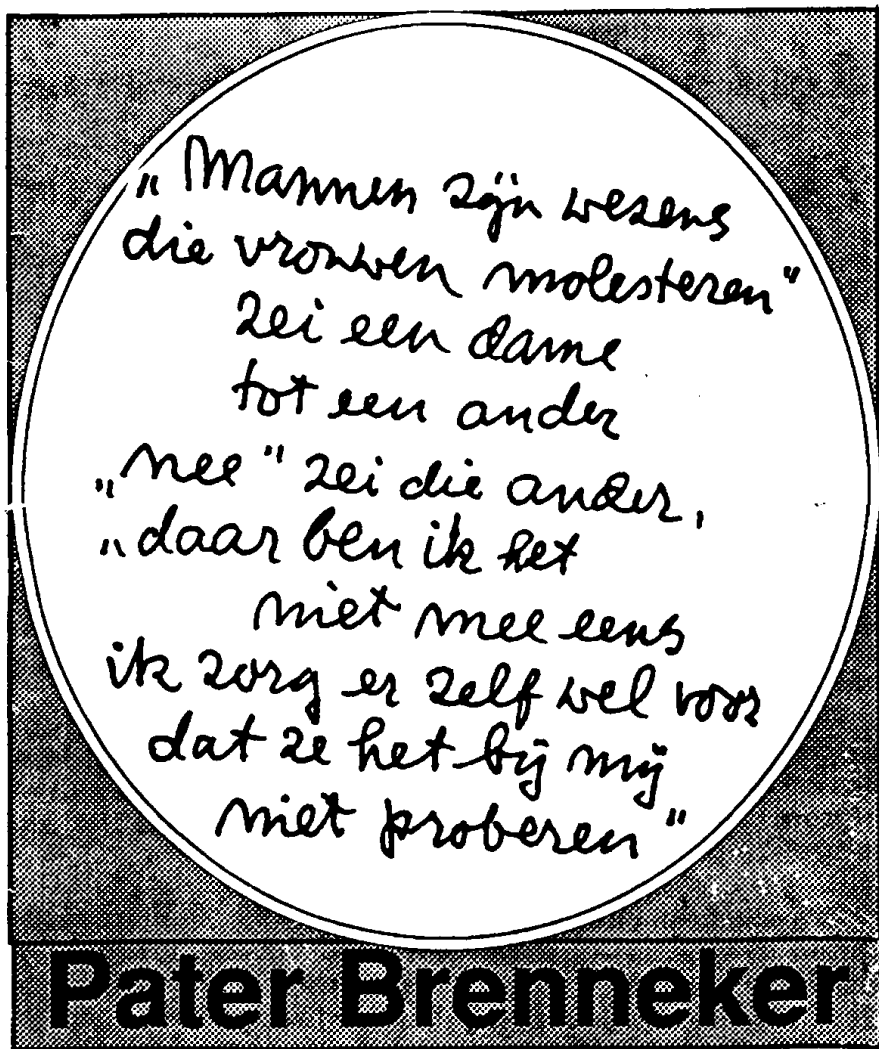 „Mannen zijn wezens
die vrouwen molesteren"
zei een dame
tot een ander
„nee" zei die ander,
„daar ben ik het
niet mee eens
ik zorg er zelf wel voor
dat ze het bij mij
niet proberen"
Pater Brenneker